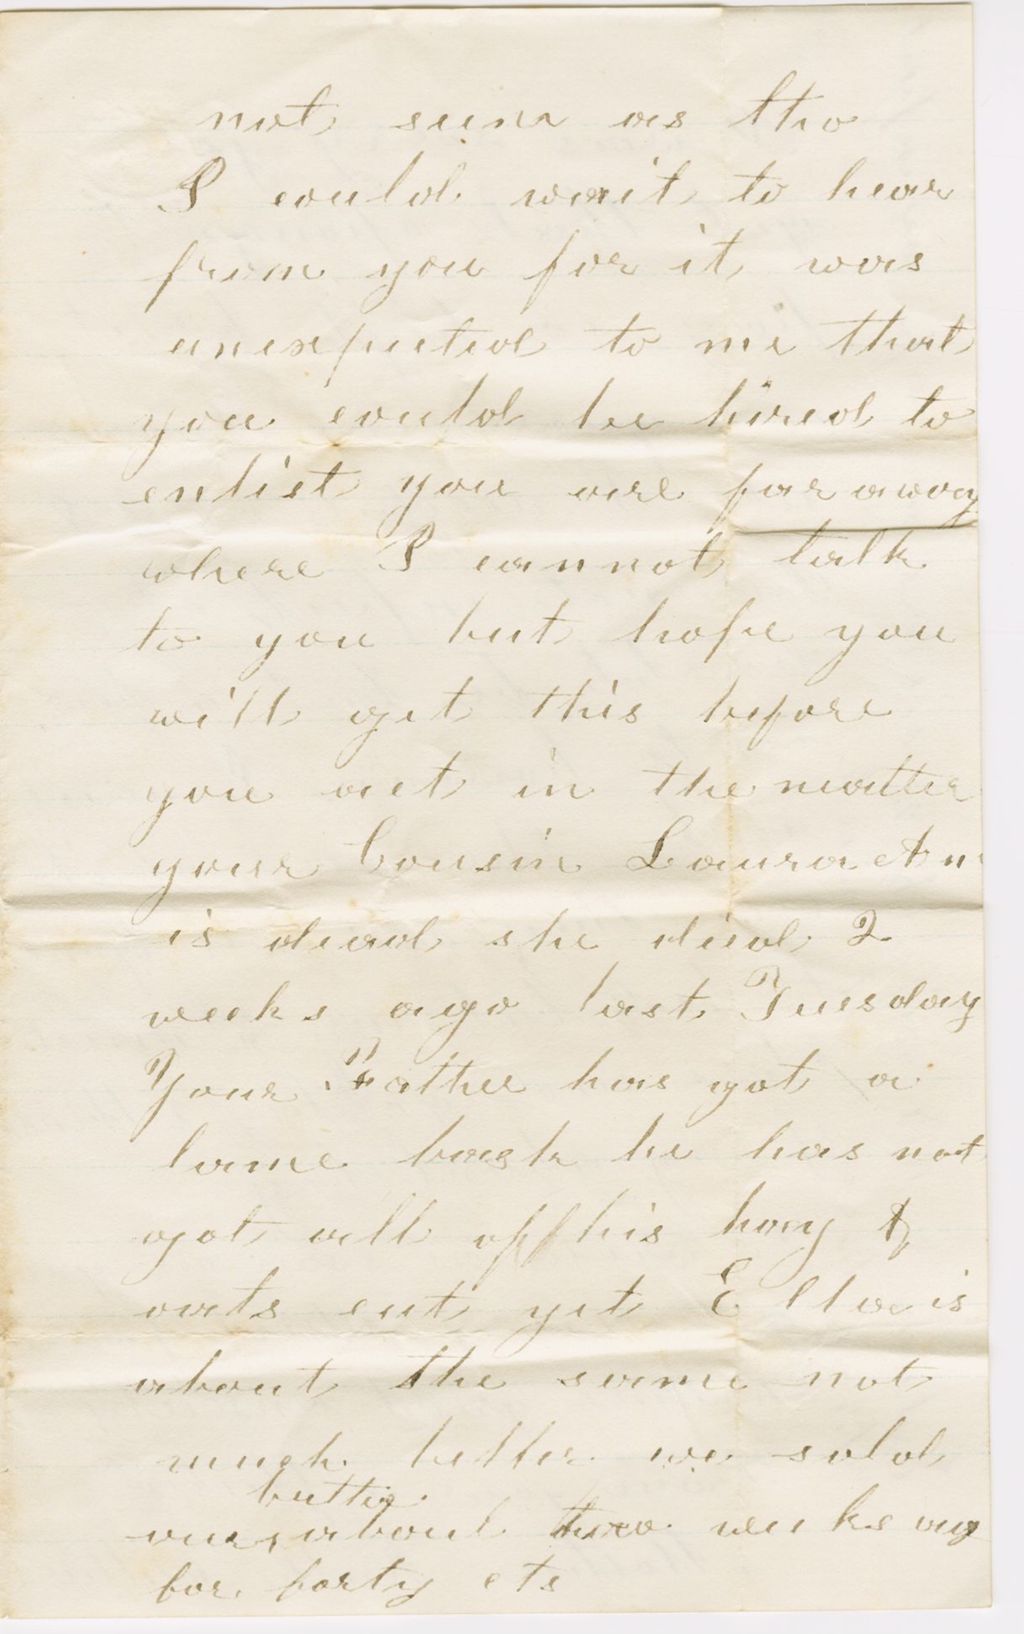 not seem as tho
I could wait to hear
from you for it was
unexpected to me that
you could be hired to
enlist you are far away
where I cannot talk
to you but hope you
will get this before
you act in the matter
your Cousin Laura Ann
is dead she died 2
weeks ago last Tuesday
Your Father has got a
lame back he has not
got all off his hay &
oats cut yet Ella is
about the same not
much better we sold
butter
our, about two weeks ago
for forty cts